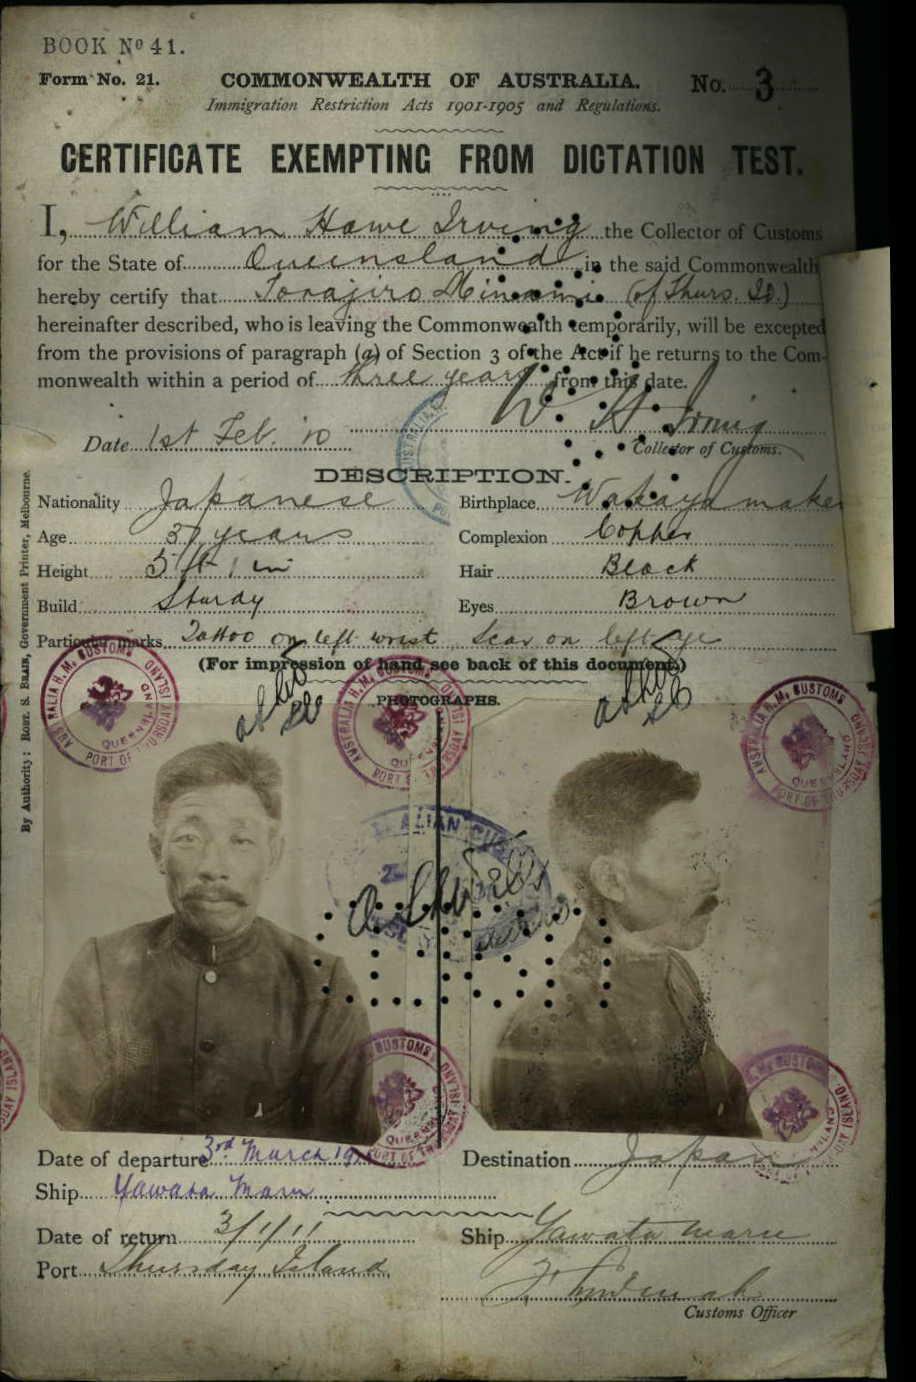 BOOK Nº 41.
Form No. 21. COMMONWEALTH OF AUSTRALIA. No. 3
Immigration Restriction Acts 1901-1905 and Regulations.
CERTIFICATE EXEMPTING FROM DICTATION TEST.
I, William Hawe Irving the Collector of Customs
for the State of Queensland in the said Commonwealth
hereby certify that Torajiro Minami (of Thurs. Id.)
hereinafter described, who is leaving the Commonwealth temporarily, will be excepted
from the provisions of paragraph (a) of Section 3 of the Act if he returns to the Com-
monwealth within a period of three years from this date.
W H Irving
Date 1st Feb. 10 Collector of Customs.
DESCRIPTION.
Nationality Japanese Birthplace Wakayamaken
Age 37 years Complexion Copper
Height 5 ft 1 in Hair Black
Build Sturdy Eyes Brown
Particular marks Tattoo on left wrist Scar on left eye
(For impression of hand see back of this document.)
PHOTOGRAPHS.
AUSTRALIA H.M. CUSTOMS
QUEENSLAND
PORT OF THURSDAY ISLAND
Date of departure 3rd March 19 Destination Japan
Ship Yawata Maru
Date of return 3/1/11 Ship Yawata Maru
Port Thursday Island
Customs Officer
By Authority: ROBT. S. BRAIN, Government Printer, Melbourne.